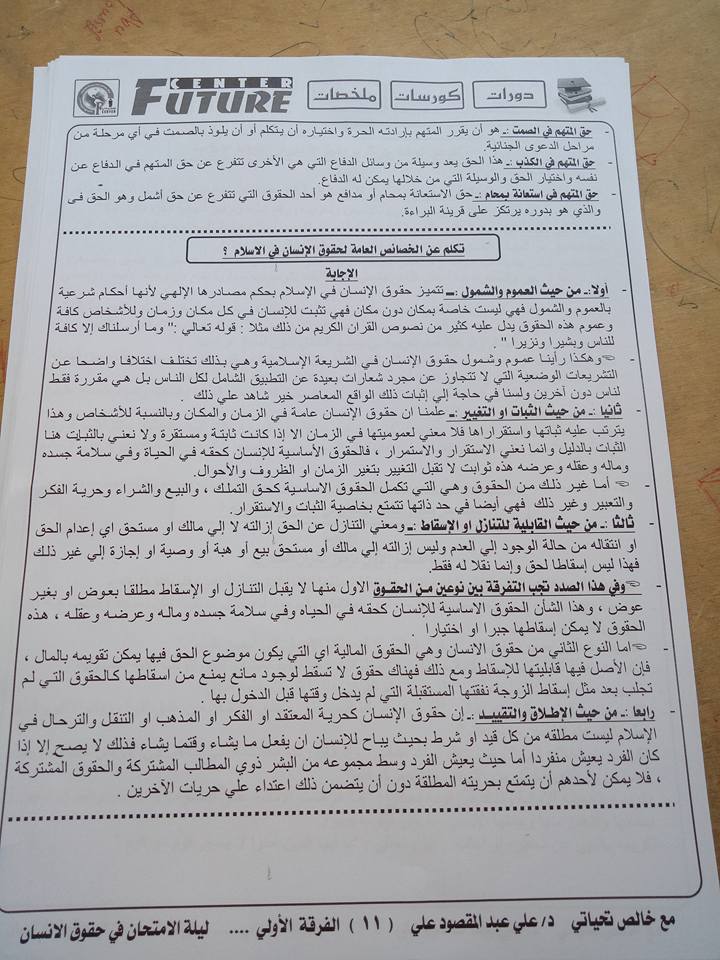 CENTER
FUTURE
دورات
كورسات
ملخصات
- حق المتهم في الصمت :ـ هو أن يقرر المتهم بإرادته الحرة واختياره أن يتكلم أو أن يلوذ بالصمت في أي مرحلة من
مراحل الدعوى الجنائية.
- حق المتهم في الكذب :ـ هذا الحق يعد وسيلة من وسائل الدفاع التي هي الأخرى تتفرع عن حق المتهم في الدفاع عن
نفسه واختيار الحق والوسيلة التي من خلالها يمكن له الدفاع.
- حق المتهم في استعانة بمحام :ـ حق الاستعانة بمحام أو مدافع هو أحد الحقوق التي تتفرع عن حق أشمل وهو الحق فى
والذي هو بدوره يرتكز على قرينة البراءة.
تكلم عن الخصائص العامة لحقوق الإنسان في الاسلام ؟
الإجابة
- أولا:ـ من حيث العموم والشمول :ــ تتميز حقوق الإنسان في الإسلام بحكم مصادرها الإلهي لأنها أحكام شرعية
بالعموم والشمول فهي ليست خاصة بمكان دون مكان فهي تثبت للإنسان في كل مكان وزمان وللأشخاص كافة
وعموم هذه الحقوق يدل عليه كثير من نصوص القران الكريم من ذلك مثلا : قوله تعالي :" وما أرسلناك إلا كافة
للناس وبشيرا ونزيرا " .
- وهكذا رأينا عموم وشمول حقوق الإنسان في الشريعة الإسلامية وهي بذلك تختلف اختلافا واضحا عن
التشريعات الوضعية التي لا تتجاوز عن مجرد شعارات بعيدة عن التطبيق الشامل لكل الناس بل هي مقررة فقط
لناس دون آخرين ولسنا في حاجة إلي إثبات ذلك الواقع المعاصر خير شاهد علي ذلك .
- ثانيا :ـ من حيث الثبات او التغيير :ـ علمنا ان حقوق الإنسان عامة في الزمان والمكان وبالنسبة للأشخاص وهذا
يترتب عليه ثباتها واستقرارها فلا معني لعموميتها في الزمان الا إذا كانت ثابتة ومستقرة ولا نعني بالثبات هنا
الثبات بالدليل وانما نعني الاستقرار والاستمرار ، فالحقوق الأساسية للإنسان كحقه في الحياة وفي سلامة جسده
وماله وعقله وعرضه هذه ثوابت لا تقبل التغيير بتغير الزمان او الظروف والأحوال.
- أما غير ذلك من الحقوق وهي التي تكمل الحقوق الاساسية كحق التملك ، والبيع والشراء وحرية الفكر
والتعبير وغير ذلك فهي أيضا في حد ذاتها تتمتع بخاصية الثبات والاستقرار.
- ثالثا :ـ من حيث القابلية للتنازل او الإسقاط :ـ ومعني التنازل عن الحق إزالته لا إلي مالك او مستحق اي إعدام الحق
او انتقاله من حالة الوجود إلي العدم وليس إزالته إلي مالك أو مستحق بيع أو هبة أو وصية او إجازة إلي غير ذلك
فهذا ليس إسقاطا لحق وإنما نقلا له فقط.
- وفي هذا الصدد تجب التفرقة بين نوعين من الحقوق الاول منها لا يقبل التنازل أو الإسقاط مطلقا بعوض او بغير
عوض ، وهذا الشأن الحقوق الاساسية للإنسان كحقه في الحياه وفي سلامة جسده وماله وعرضه وعقله ، هذه
الحقوق لا يمكن إسقاطها جبرا او اختيارا .
- اما النوع الثاني من حقوق الانسان وهي الحقوق المالية اي التي يكون موضوع الحق فيها يمكن تقويمه بالمال ،
فإن الأصل فيها قابليتها للإسقاط ومع ذلك فهناك حقوق لا تسقط لوجود مانع يمنع من اسقاطها كالحقوق التي لم
تجلب بعد مثل إسقاط الزوجة نفقتها المستقبلة التي لم يدخل وقتها قبل الدخول بها .
- رابعا :ـ من حيث الإطلاق والتقييد :ـ إن حقوق الإنسان كحرية المعتقد او الفكر او المذهب او التنقل والترحال في
الإسلام ليست مطلقه من كل قيد او شرط بحيث يباح للإنسان ان يفعل ما يشاء وقتما يشاء فذلك لا يصح إلا إذا
كان الفرد يعيش منفردا أما حيث يعيش الفرد وسط مجموعه من البشر ذوي المطالب المشتركة والحقوق المشتركة
، فلا يمكن لأحدهم أن يتمتع بحريته المطلقة دون أن يتضمن ذلك اعتداء علي حريات الآخرين .
مع خالص تحياتي د/ علي عبد المقصود علي ( ١١ ) الفرقة الأولي .... ليلة الامتحان في حقوق الانسان